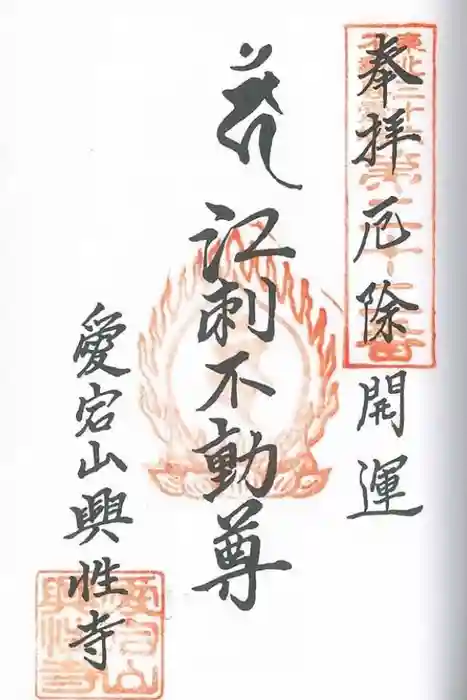 奉拝厄除開運
江刺不動尊
愛宕山興性寺